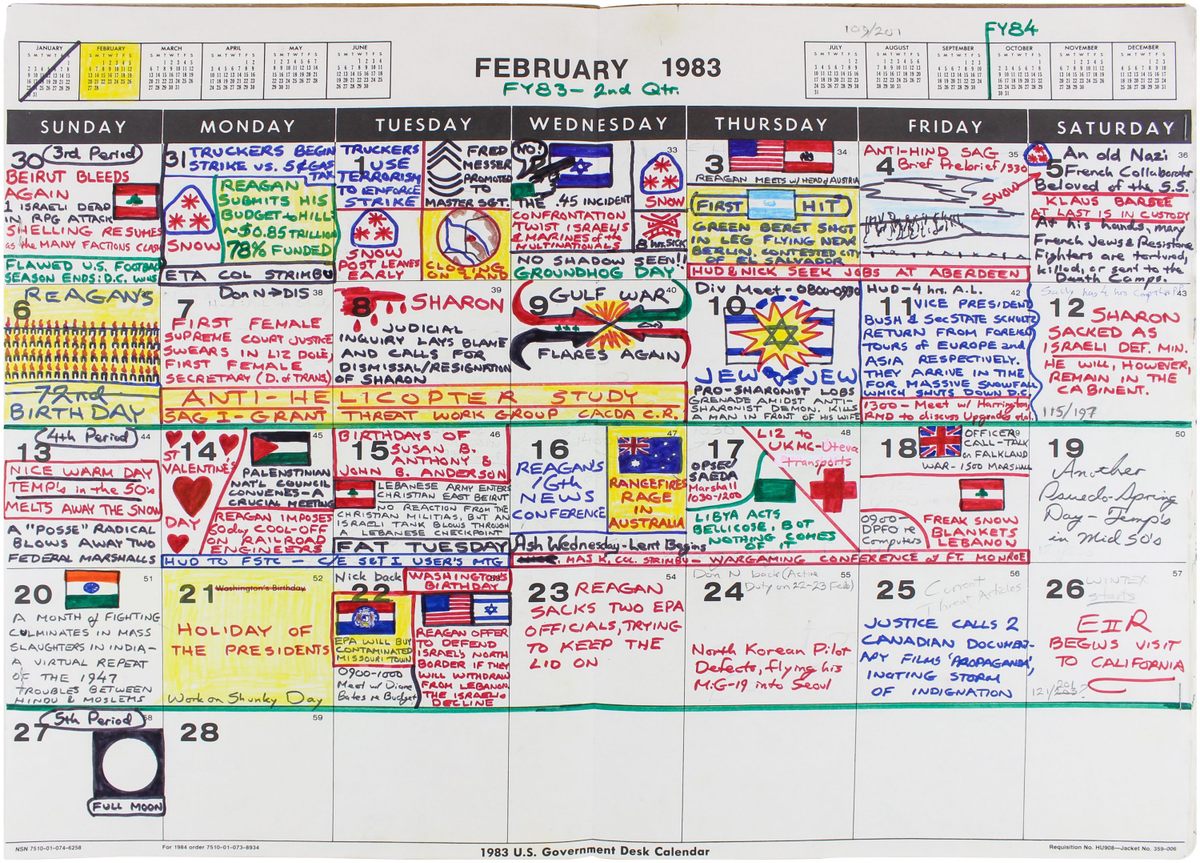 100/201
FY84
JANUARY
FEBRUARY
MARCH
APRIL
MAY
JUNE
FEBRUARY 1983
FY83 - 2nd Qtr.
JULY
AUGUST
SEPTEMBER
OCTOBER
NOVEMBER
DECEMBER
SUNDAY
MONDAY
TUESDAY
WEDNESDAY
THURSDAY
FRIDAY
SATURDAY
30 3rd Period
BEIRUT BLEEDS
AGAIN
1 ISRAELI DEAD
IN RPG ATTACK
SHELLING RESUMES
as the MANY FACTIONS CLASH
FLAWED U.S. FOOTBALL
SEASON ENDS: D.C. WINS
31 TRUCKERS BEGIN
STRIKE VS. 5¢ GAS
TAX
SNOW
REAGAN
SUBMITS HIS
BUDGET TO HILL
~$0.85 TRILLION
78% FUNDED
ETA COL STRIMBU
TRUCKERS
1 USE
TERRORISM
TO ENFORCE
STRIKE
SNOW
POST LEAVES
EARLY
FRED
MESSER
PROMOTED
TO
MASTER SGT.
CLOSING
NO!
THE .45 INCIDENT
CONFRONTATION
TWIXT ISRAELIS
& MARINES of the
MULTINATIONALS
33
SNOW
8 hr. SICK
NO SHADOW SEEN!!
GROUNDHOG DAY
3
34
REAGAN MEETS w/ HEAD of AUSTRIA
FIRST HIT
GREEN BERET SHOT
IN LEG FLYING NEAR
BERLIN, CONTESTED CITY
OF EL SALVADOR
HUD & NICK SEEK JOBS AT ABERDEEN
ANTI-HIND SAG
4 Brief Prebrief /1330
35
SNOW
5
36
An old Nazi
French Collaborator
Beloved of the S.S.
KLAUS BARBEE
AT LAST IS IN CUSTODY
At his hands, many
French Jews & Resistance
Fighters are tortured,
killed, or sent to the
Death Camps.
6 REAGAN'S
72nd
BIRTHDAY
7
Don N→DIS
38
FIRST FEMALE
SUPREME COURT JUSTICE
SWEARS IN LIZ DOLE,
FIRST FEMALE
SECRETARY (D. of TRANS)
8 SHARON
39
JUDICIAL
INQUIRY LAYS BLAME
AND CALLS FOR
DISMISSAL/RESIGNATION
OF SHARON
9 GULF WAR
40
FLARES AGAIN
ANTI-HELICOPTER STUDY
SAG I-GRANT
THREAT WORK GROUP CACDA C.R.
Div Meet - 0800-0930
10
JEW vs JEW
PRO-SHARONIST LOBS
GRENADE AMIDST ANTI-
SHARONIST DEMON. KILLS
A MAN IN FRONT OF HIS WIFE
HUD - 4 hr. A.L.
42
11 VICE PRESIDENT
BUSH & SecSTATE SCHULTZ
RETURN FROM FOREIGN
TOURS OF EUROPE and
ASIA RESPECTIVELY.
THEY ARRIVE IN TIME
FOR MASSIVE SNOWFALL
WHICH SHUTS DOWN D.C.
1300 - Meet w/ Harrington
AMD to discuss Upgrades etc.
43
12 SHARON
SACKED AS
ISRAELI DEF. MIN.
HE WILL, HOWEVER,
REMAIN IN THE
CABINENT.
115/197
13 4th Period
44
NICE WARM DAY
TEMP'S in the 50's
MELTS AWAY THE SNOW
A "POSSE" RADICAL
BLOWS AWAY TWO
FEDERAL MARSHALLS
14
ST
VALENTINE'S
DAY
45
PALENSTINIAN
NAT'L COUNCIL
CONVENES - A
CRUCIAL MEETING
REAGAN IMPOSES
60 day COOL-OFF
ON RAILROAD
ENGINEERS
HUD TO FSTC - C/E SET I USER'S MTG
BIRTHDAYS OF
15 SUSAN B.
ANTHONY &
JOHN B. ANDERSON
46
LEBANESE ARMY ENTERS
CHRISTIAN EAST BEIRUT
NO REACTION FROM THE
CHRISTIAN MILITIAS, BUT AN
ISRAELI TANK BLOWS THROUGH
A LEBANESE CHECKPOINT
FAT TUESDAY
16
47
REAGAN'S
16th
NEWS
CONFERENCE
RANGEFIRES
RAGE
IN
AUSTRALIA
Ash Wednesday - Lent Begins
HAS K. COL. STRIMBU - WARGAMING CONFERENCE of FT. MONROE
17
48
LIZ to
UKMC-Uteva
Transports
OPSEC
SAEDA
Marshall
1030-1200
LIBYA ACTS
BELLICOSE, BUT
NOTHING COMES
OF IT
18
OFFICER
CALL - TALK
on FALKLAND
WAR - 1500 MARSHALL
0900
DPFO re
Computers
FREAK SNOW
BLANKETS
LEBANON
19
50
Another
Psuedo-Spring
Day - Temp's
in Mid 50's
20
51
A MONTH OF FIGHTING
CULMINATES IN MASS
SLAUGHTERS IN INDIA -
A VIRTUAL REPEAT
OF THE 1947
TROUBLES BETWEEN
HINDU & MOSLEMS
21
52
Washington's Birthday
HOLIDAY OF
THE PRESIDENTS
Work on Shunky Day
Nick back
22
WASHINGTON'S
BIRTHDAY
EPA WILL BUY
CONTAMINATED
MISSOURI TOWN
0900-1000
Meet w/ Diane
Bates re Budget
REAGAN OFFER
TO DEFEND
ISRAEL'S NORTH
BORDER IF THEY
WILL WITHDRAW
FROM LEBANON.
THE ISRAELIS
DECLINE
23 REAGAN
54
SACKS TWO EPA
OFFICIALS, TRYING
TO KEEP THE
LID ON
Don N back (Active
Duty on 22-23 Feb)
24
55
North Korean Pilot
Defects, flying his
MiG-19 into Seoul
25
56
Threat Articles
JUSTICE CALLS 2
CANADIAN DOCUMENT-
ARY FILMS 'PROPAGANDA',
INCITING STORM
OF INDIGNATION
26
57
WINTEX
starts
EIIR
BEGINS VISIT
TO CALIFORNIA
27 5th Period
58
FULL MOON
28
59
NSN 7510-01-074-6258
For 1984 order 7510-01-073-8934
1983 U.S. Government Desk Calendar
Requisition No. HU908—Jacket No. 359-006